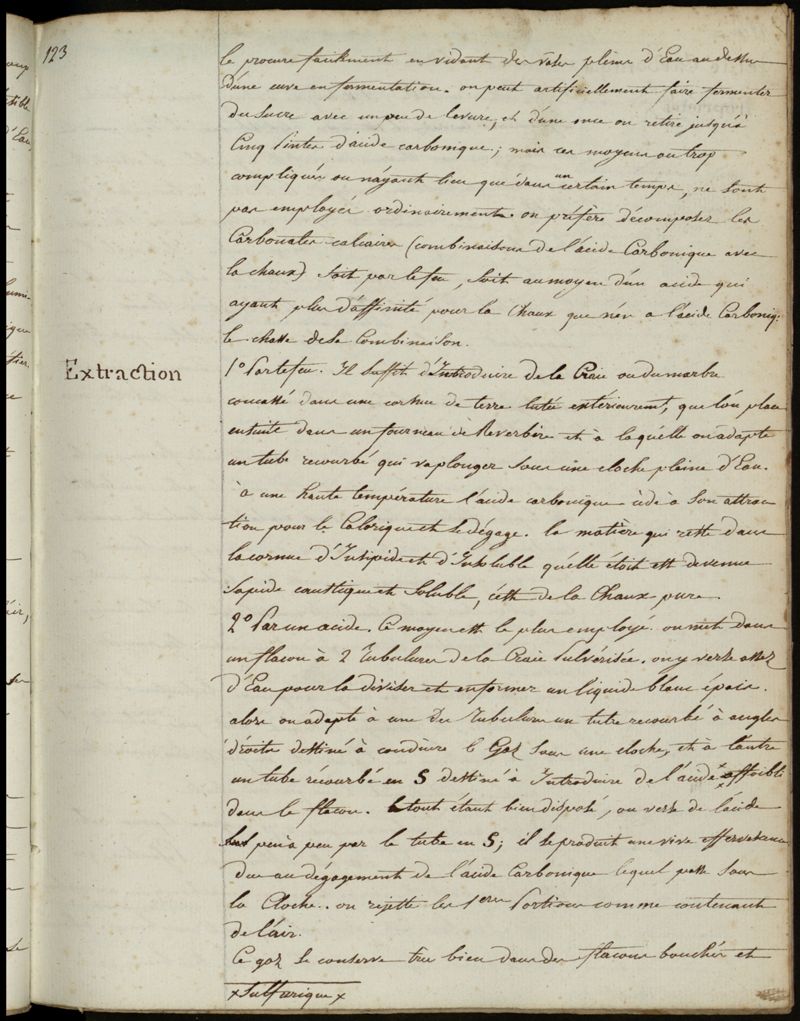 123
le procure facilement en vidant des vases pleins d'Eau au dessus
d'une cuve en fermentation. on peut artificiellement faire fermenter
du sucre avec un peu de levure, et d'une once on retire jusqu'à
Cinq Pintes d'acide carbonique; mais ces moyens ou trop
compliqués ou n'ayant lieu que dans un certain temps, ne sont
pas employés ordinairement. on préfère décomposer les
Carbonates calcaires (combinaisons de l'acide Carbonique avec
la chaux) soit par le feu, soit au moyen d'un acide qui
ayant plus d'affinité pour la Chaux que n'en a l'acide Carboniq:
le chasse de la Combinaison.
Extraction
1.º Par le feu. Il suffit d'Introduire de la Craie ou du marbre
concassé dans une cornue de terre lutée extérieurement, que l'on place
ensuite dans un fourneau à Reverbère et à laquélle on adapte
un tube recourbé qui va plonger sous une cloche pleine d'Eau.
à une haute température l'acide carbonique cède à son attrac
tion pour le Calorique et se dégage. la matière qui reste dans
la cornue d'Insipide et d'Insoluble qu'élle étoit est devenue
Sapide caustique et Soluble, c'est de la Chaux pure.
2.º Par un acide. Ce moyen est le plus employé. on met dans
un flacon à 2 Tubulures de la Craie Pulvérisée. on y verse assez
d'Eau pour la diviser et en former un liquide blanc épais.
alors on adapte à une des Tubulures un tube recourbé à angles
droits destiné à conduire le Gaz sous une cloche, et à l'autre
un tube récourbé en S destiné à Introduire de l'acide x affoibli
dans le flacon. le tout étant bien disposé, on verse de l'acide
peu à peu par le tube en S; il se produit une vive effervescence
due au dégagement de l'acide Carbonique lequel passe sous
la Cloche. on rejette les 1eres Portions comme contenant
de l'air.
Ce gaz se conserve tres bien dans des flacons bouchés et
x Sulfurique x